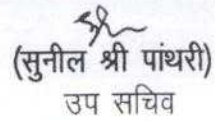 (सुनील श्री पांथरी)
उप सचिव